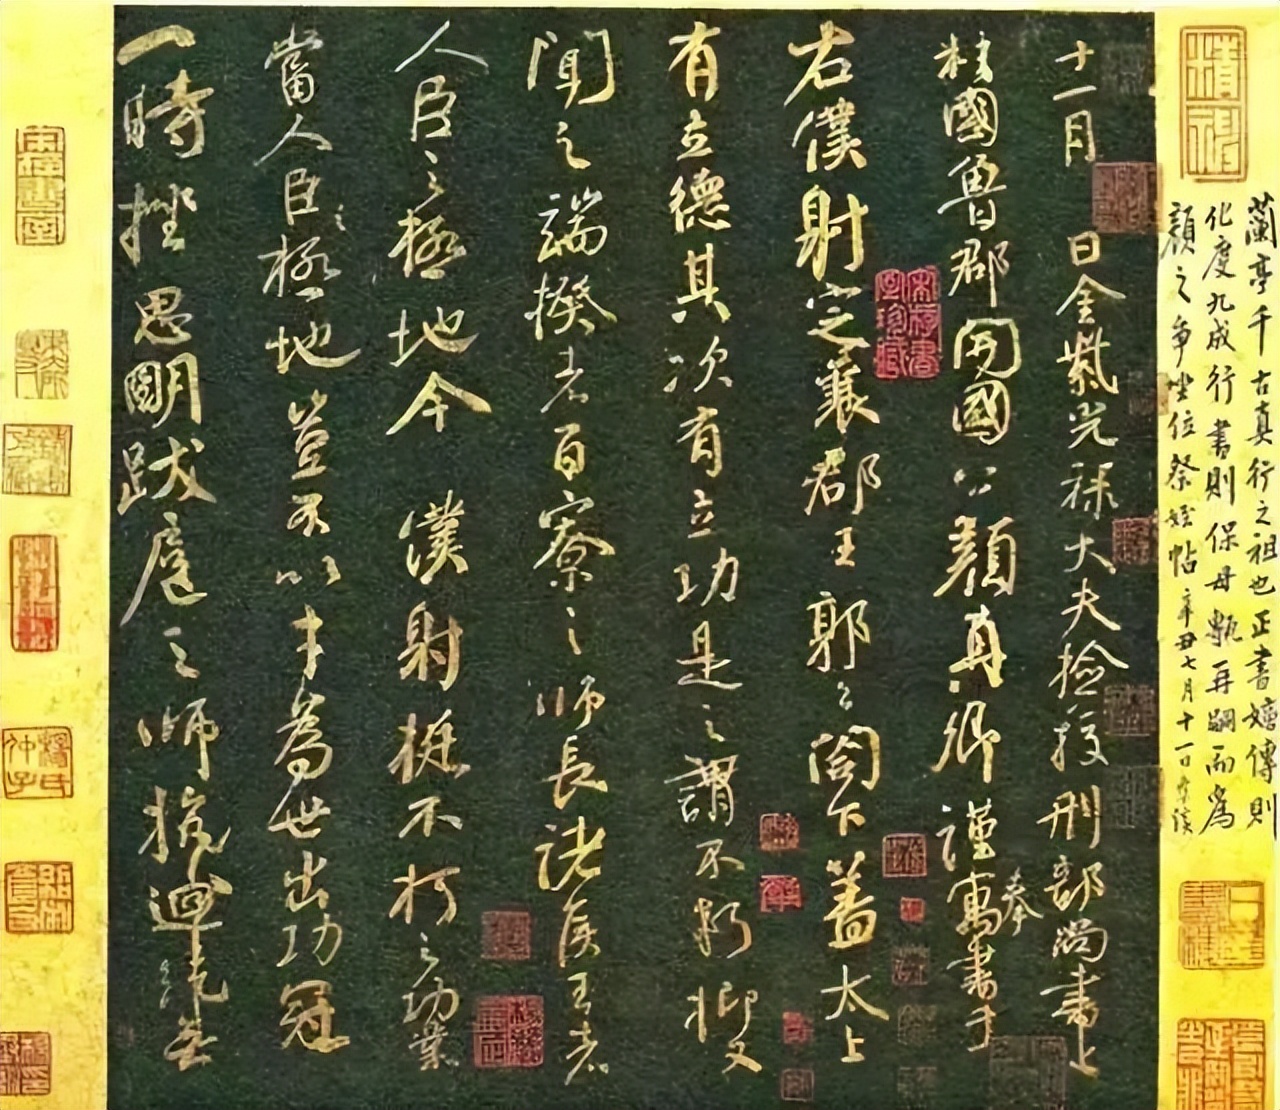 蘭亭千古真行之祖也正書嫡傳則
化度九成行書則保母甎再嗣而為
顏之争坐位祭姪帖 辛丑七月十一日
十一月 日金紫光祿大夫撿挍刑部尚書上
柱國魯郡開國公顏真卿謹奉寓書于
右僕射定襄郡王郭公閤下蓋太上
有立德其次有立功是之謂不朽抑又
聞之端揆者百寮之師長諸侯王者
人臣之極地今 僕射挺不朽之功業
當人臣之極地豈不以才為世出功冠
一時挫思明跋扈之師抗迴紇無